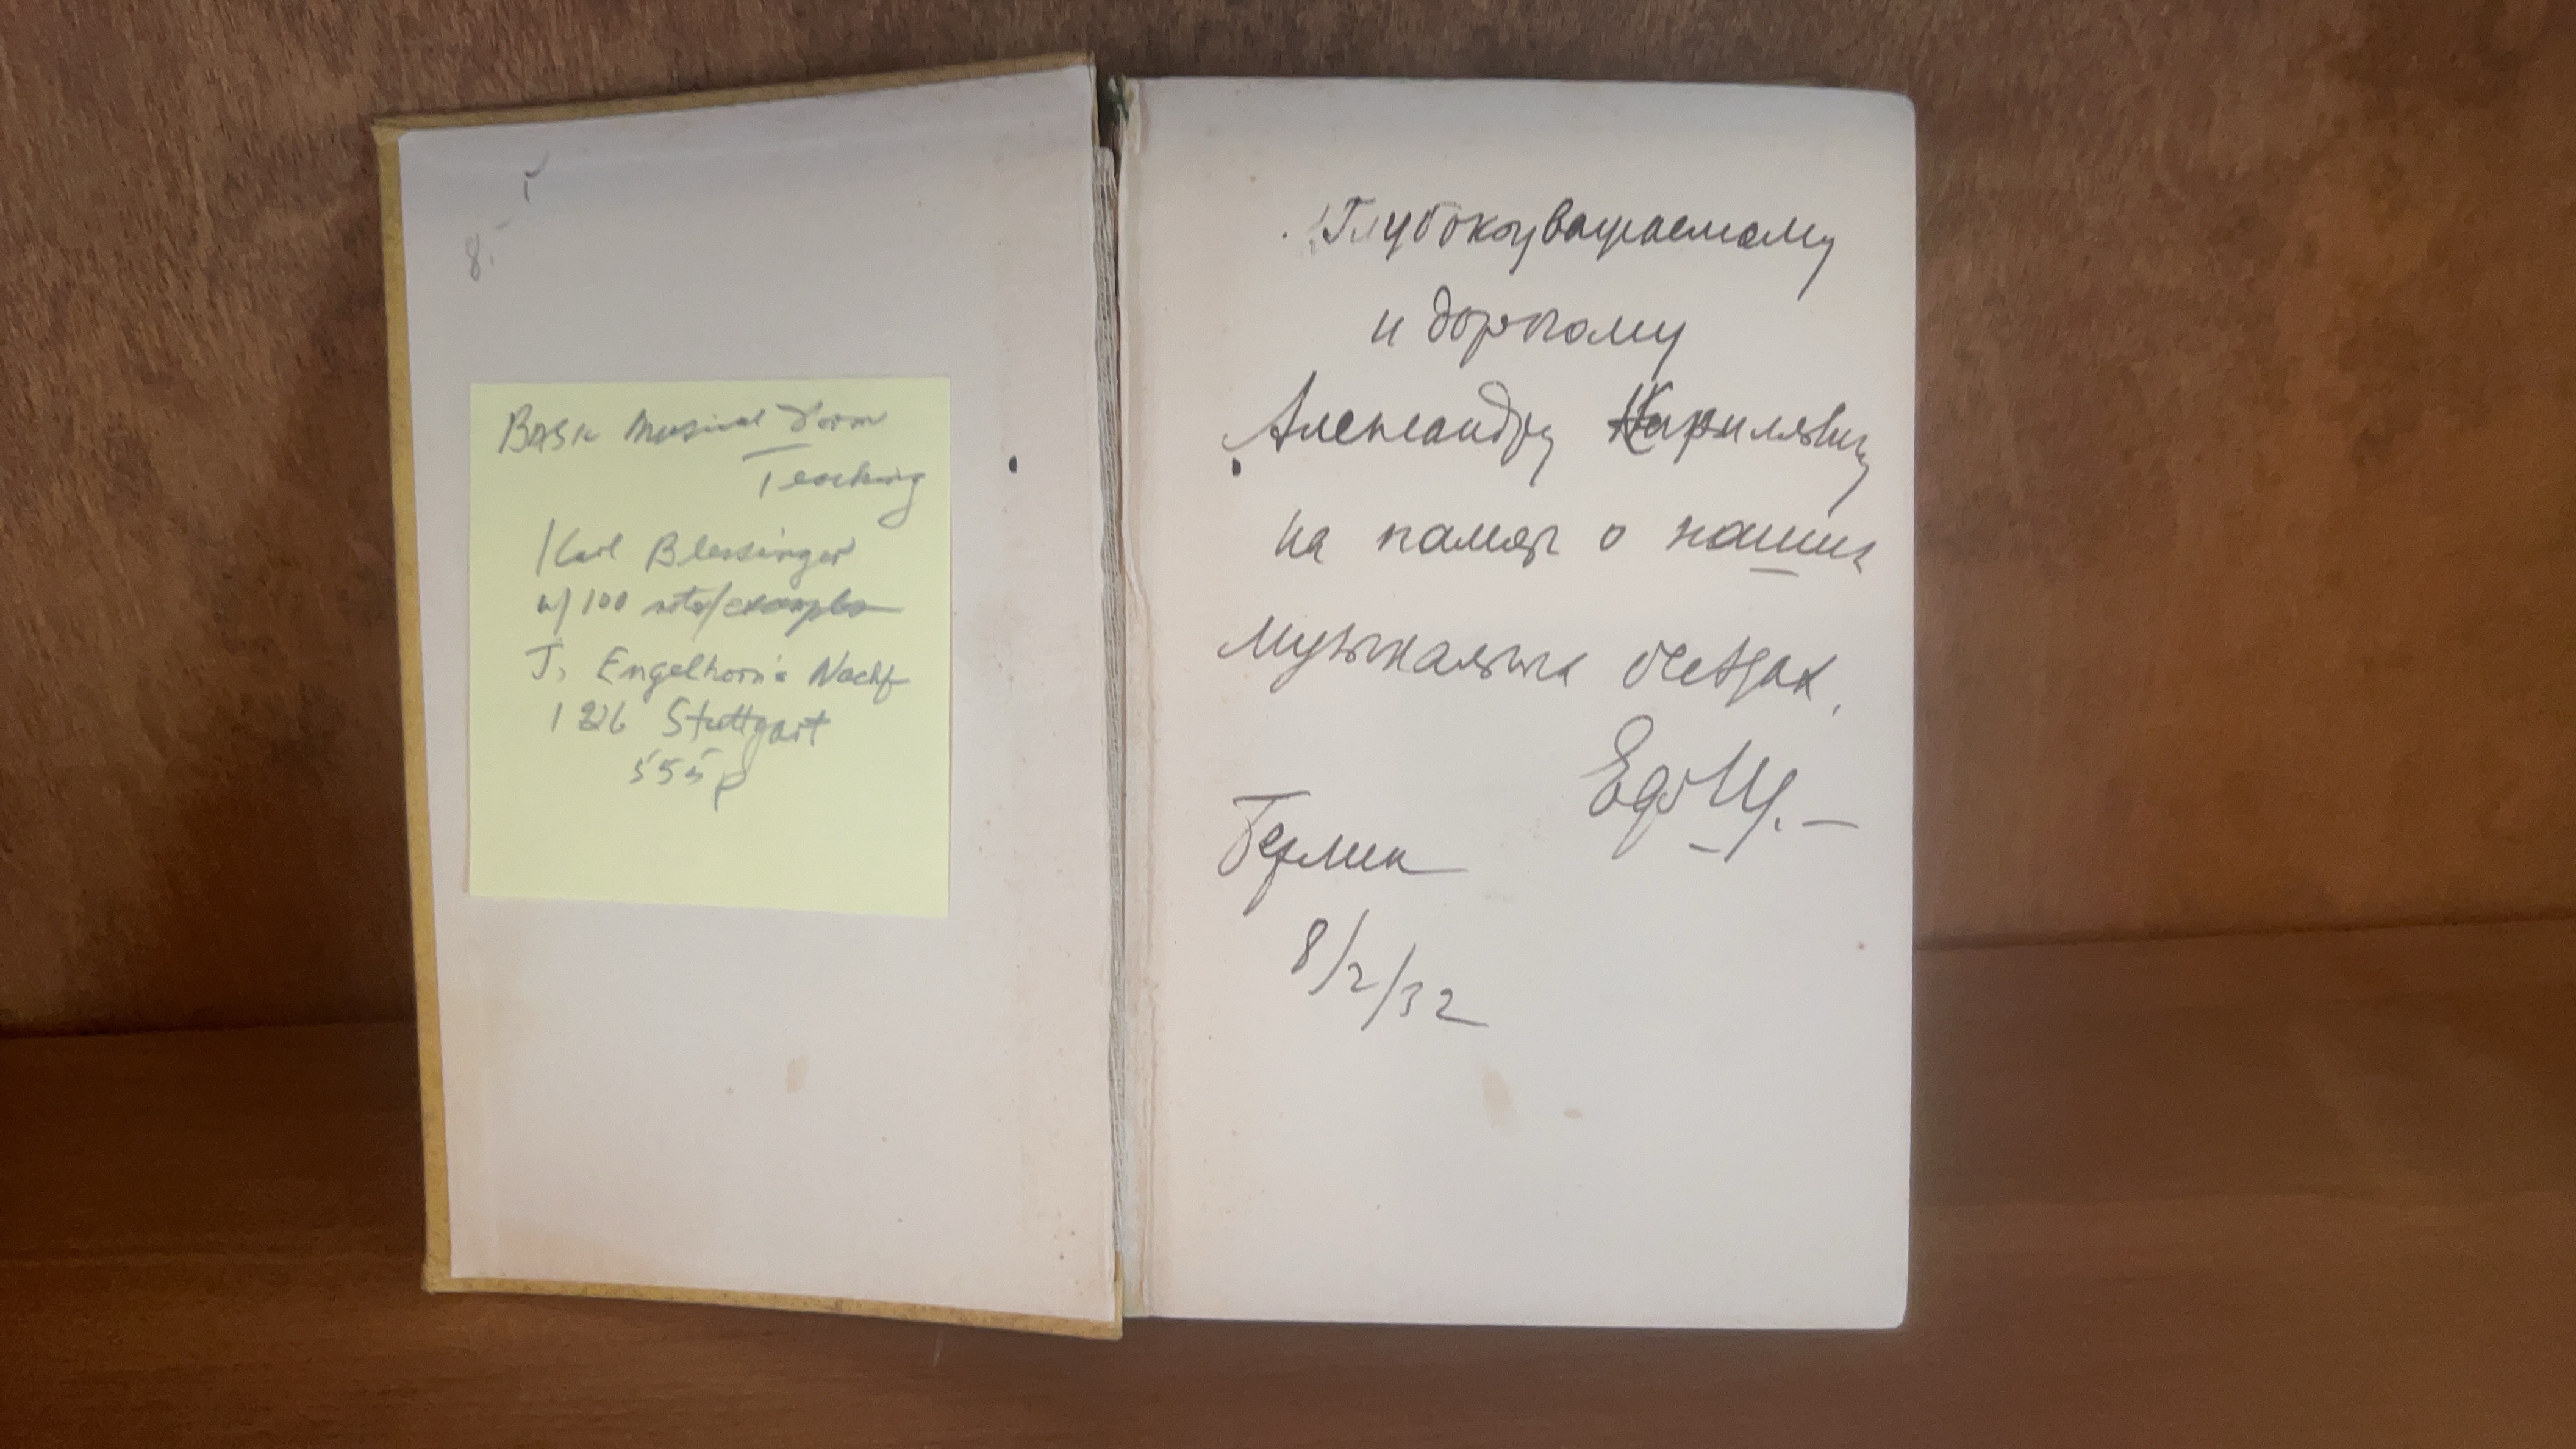 8.-
Basic Musical Form
Teaching
Karl Blessinger
w/ 100 note/examples
J. Engelhorn's Nachf
1926 Stuttgart
555 p
Глубокоуважаемому
и дорогому
Александру Кириловичу
на память о наших
музыкальных беседах.
Берлин
8/2/32